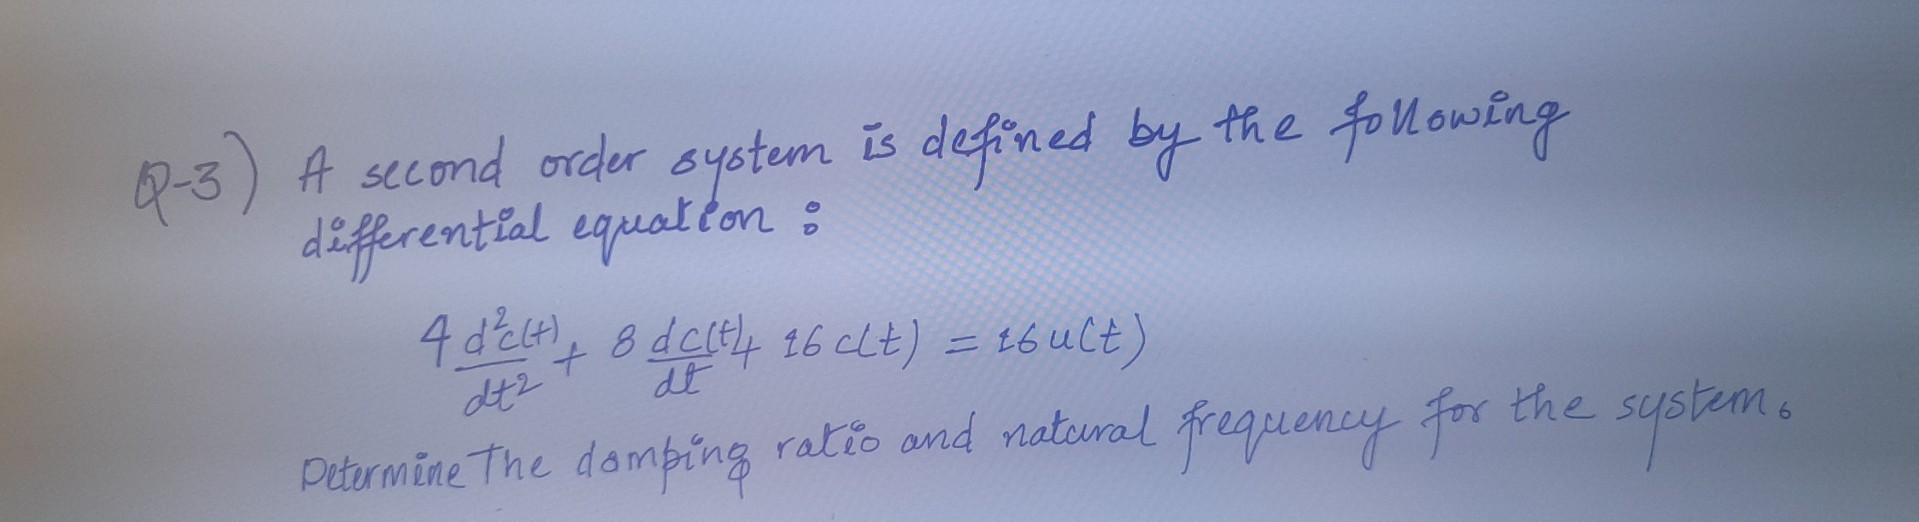 Q-3) A second order system is defined by the following
differential equation :
4 d²c(t)/dt² + 8 dc(t)/dt + 16 c(t) = 16 u(t)
Determine The damping ratio and natural frequency for the system.